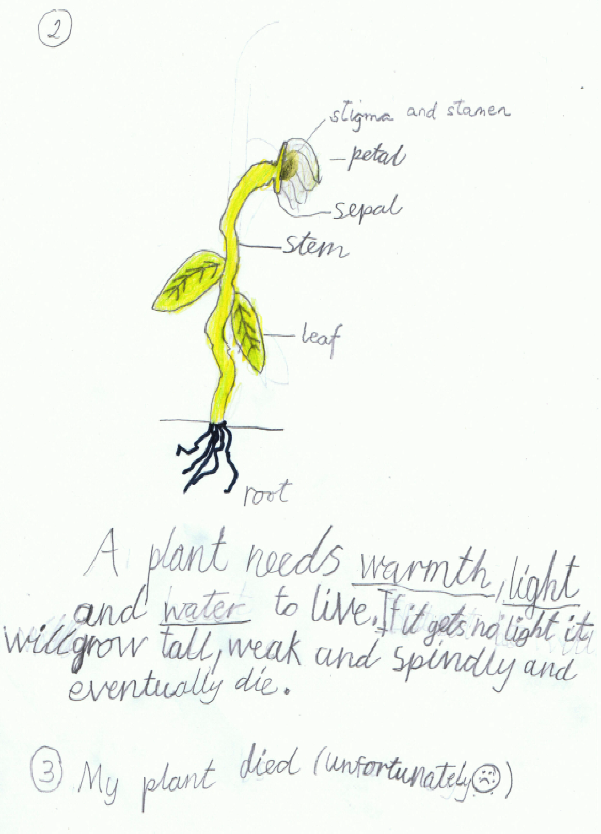 2
stigma and stamen
petal
sepal
stem
leaf
root
A plant needs warmth, light
and water to live. If it gets no light it
will grow tall, weak and spindly and
eventually die.
3 My plant died (unfortunately☹)